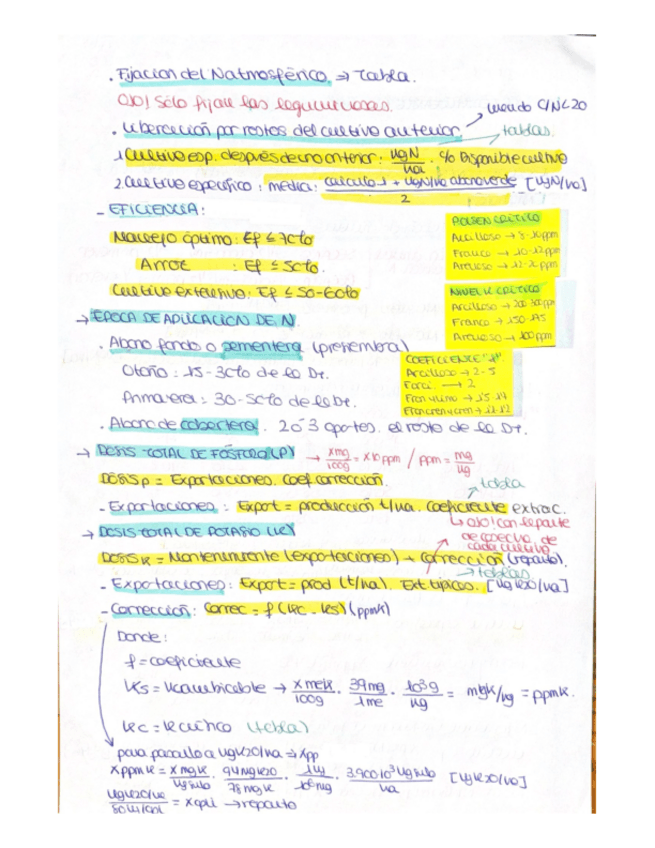 . Fijacion del N atmosférico => Tabla.
OJO! Sólo fijan las leguminosas.
. Liberación por restos del cultivo anterior. → cuando C/N<20
→ tablas.
1. Cultivo esp. después de uno anterior: kgN/ha . % Disponible cultivo
2. Cultivo específico: media: calculo 1 + kgN/ha abono verde / 2 [kgN/ha]
- EFICIENCIA:
Manejo óptimo: Ef ≤ 70%
Arroz : Ef ≤ 50%.
Cultivo extensivo: Ef ≤ 50-60%
P OLSEN CRÍTICO
Arcilloso → 8-10 ppm
Franco → 10-12 ppm
Arenoso → 12- ppm
NIVEL K CRÍTICO
Arcilloso → 200 300 ppm
Franco → 150-175
Arenoso → 100 ppm
→ EPOCA DE APLICACION DE N
. Abono fondo o sementera (presiembra)
Otoño: 15-30% de la DT.
Primavera: 30-50% de la DT.
. Abono de cobertera. 2 ó 3 aportes. el resto de la DT.
COEFICIENTE "f".
Arcilloso → 2-5
→ 2
→ DOSIS TOTAL DE FÓSFORO (P) → xmg/100g = x10 ppm / ppm = mg/kg
DOSIS P = Exportaciones. Coef. corrección.
→ tabla
- Exportaciones: Export = producción t/ha. Coeficiente extrac.
↳ ojo! con la parte de cosecha de cada cultivo
→ DOSIS TOTAL DE POTASIO (K)
DOSIS K = Mantenimiento (exportaciones) + corrección (reparto).
→ tablas
- Exportaciones: Export = prod (t/ha). Ext típicas. [kg K2O/ha]
- Corrección: Correc = f (Kc - Ks) (ppmK)
Donde:
f = coeficiente
Ks = K cambiable → x meK/100g . 39mg/1me . 10³g/kg = mgK/kg = ppmK.
Kc = K crítico (tabla)
para pasarlo a kgK2O/ha => xpp
x ppm K = x mg K/kg suelo . 94 mg K2O/78 mg K . 1kg/10⁶mg . 3.900 10³ kg suelo/ha [kg K2O/ha]
kgK2O/ha
= x → reparto